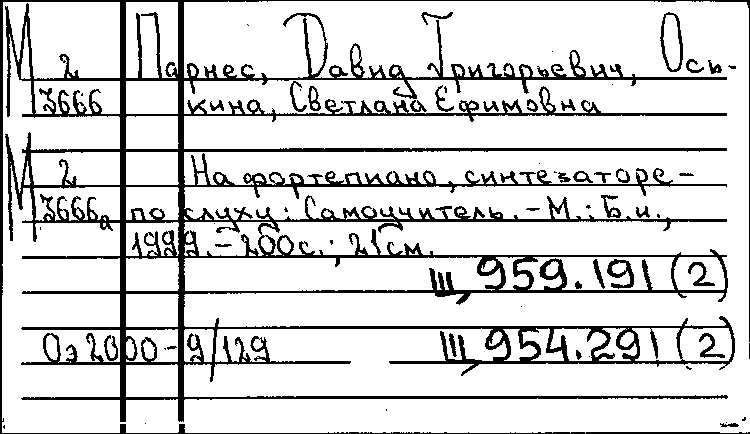 М 2 Парнес, Давид Григорьевич, Ось-
3666 кина, Светлана Ефимовна
М 2 На фортепиано, синтезаторе -
3666а по слуху: Самоучитель. - М.: Б.и.,
1999. - 200с.; 21см.
Щ 959.191 (2)
Оз 2000 - 9/129 Щ 954.291 (2)